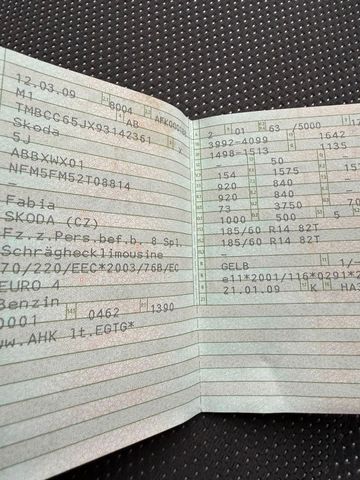 12.03.09 8004 AFK000188
M1 AB
TMBCC65JX93142361
Skoda
5J
ABBXWX01
NFM5FM52T08814
–
Fabia
SKODA (CZ)
Fz.z.Pers.bef.b. 8 Spl.
Schräghecklimousine
70/220/EEC*2003/76B/EC
EURO 4
Benzin
0001 0462 1390
ww.AHK lt.EGTG*
2 01 63 /5000
3992-4099 1642
1498-1513 1135
– 50 –
154 1575
920 840
920 840
73 3750
1000 500 5
185/60 R14 82T
185/60 R14 82T
–
GELB
e11*2001/116*0291*
21.01.09 K